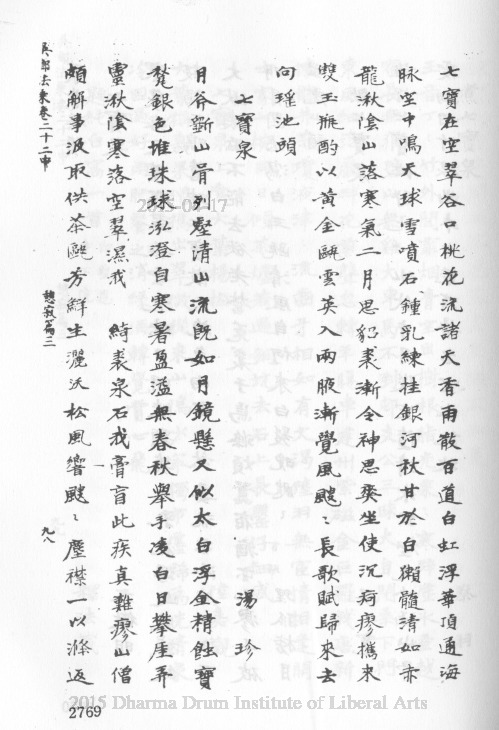 七寶在空翠谷口桃花流諸天香雨散百道白虹浮華頂通海
脉空中鳴天球雪噴石鍾乳練挂銀河秋甘於白獺髓清如赤
龍湫陰山落寒氣二月思貂裘漸令神思爽坐使沉疴瘳攜來
雙玉瓶酌以黃金甌雲英入兩腋漸覺風颼颼長歌賦歸來去
向瑤池頭
七寶泉 湯珍
月谷斲山骨列壑清山流既如月鏡懸又似太白浮金精蝕寶
甃銀色堆珠球泓澄自寒暑盈溢無春秋舉手凌白日攀崖弄
靈湫陰寒落空翠濕我綺裘泉石我膏肓此疾真難瘳山僧
頗解事汲取供茶甌芳鮮生灑沃松風響颼颼塵襟以滌返
吳都法乘卷二十二中
憩寂篇三
九八
2769
2015 Dharma Drum Institute of Liberal Arts